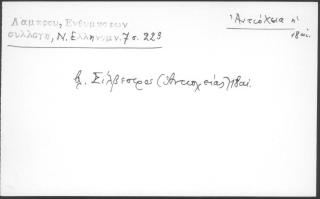 Λαμπρου, Ενθυμησεων
συλλογη, Ν. Ελληνομν. 7 σ. 223
Ἀντιόχεια π'
18 αἰ.
Σίλβεστρος (Ἀντιοχείας) 18 αἰ.